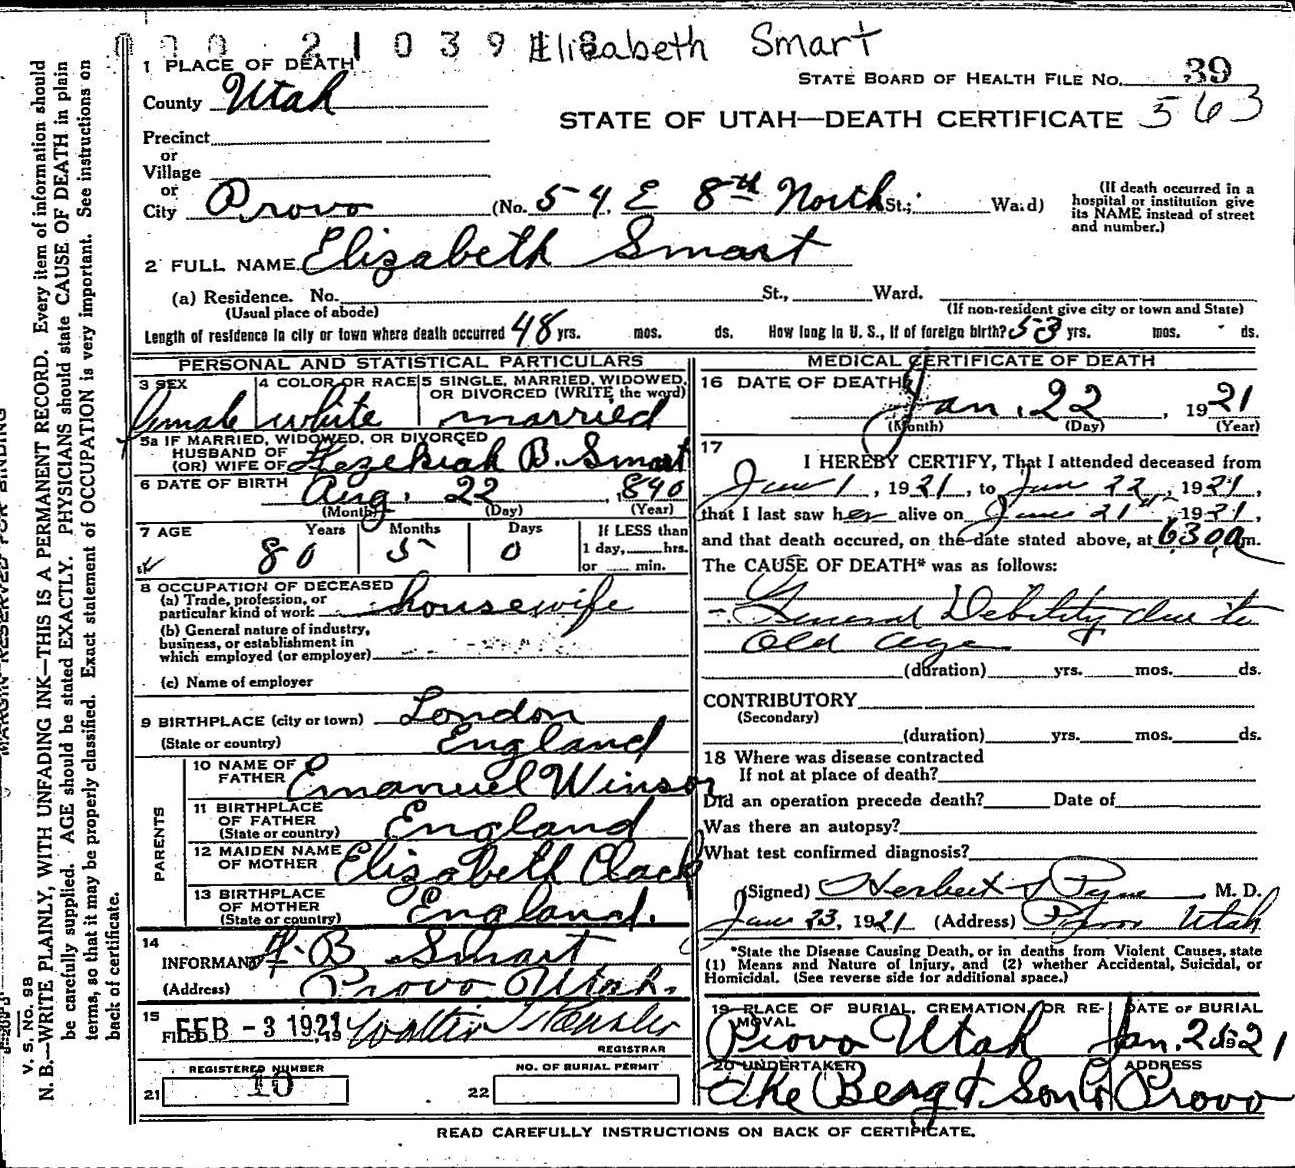 21039 Elizabeth Smart
1 PLACE OF DEATH
STATE BOARD OF HEALTH FILE NO. 39
County Utah
STATE OF UTAH—DEATH CERTIFICATE 563
Precinct
or
Village
or
City Provo (No. 54 E 8th North St.; Ward)
(If death occurred in a
hospital or institution give
its NAME instead of street
and number.)
2 FULL NAME Elizabeth Smart
(a) Residence. No. St., Ward.
(Usual place of abode) (If non-resident give city or town and State)
Length of residence in city or town where death occurred 48 yrs. mos. ds. How long in U. S., if of foreign birth? 53 yrs. mos. ds.
PERSONAL AND STATISTICAL PARTICULARS
3 SEX
female
4 COLOR OR RACE
white
5 SINGLE, MARRIED, WIDOWED,
OR DIVORCED (WRITE the word)
married
5a IF MARRIED, WIDOWED, OR DIVORCED
HUSBAND OF
(OR) WIFE OF Hezekiah B. Smart
6 DATE OF BIRTH Aug. 22, 1840
(Month) (Day) (Year)
7 AGE Years Months Days
80 5 0
If LESS than
1 day, hrs.
or min.
8 OCCUPATION OF DECEASED
(a) Trade, profession, or
particular kind of work housewife
(b) General nature of industry,
business, or establishment in
which employed (or employer)
(c) Name of employer
9 BIRTHPLACE (city or town) London
(State or country) England
PARENTS
10 NAME OF
FATHER Emanuel Winsor
11 BIRTHPLACE
OF FATHER
(State or country) England
12 MAIDEN NAME
OF MOTHER Elizabeth Clack
13 BIRTHPLACE
OF MOTHER
(State or country) England.
14
INFORMANT H. B. Smart
(Address) Provo Utah.
15
FILED FEB -3 1921, 19 Walter
REGISTRAR
REGISTERED NUMBER
21 10
NO. OF BURIAL PERMIT
22
MEDICAL CERTIFICATE OF DEATH
16 DATE OF DEATH
Jan. 22, 1921
(Month) (Day) (Year)
17
I HEREBY CERTIFY, That I attended deceased from
Jan 1, 1921, to Jan 22, 1921,
that I last saw her alive on Jan 21st 1921,
and that death occured, on the date stated above, at 6 30 a m.
The CAUSE OF DEATH* was as follows:
General Debility due to
Old age
(duration) yrs. mos. ds.
CONTRIBUTORY
(Secondary)
(duration) yrs. mos. ds.
18 Where was disease contracted
If not at place of death?
Did an operation precede death? Date of
Was there an autopsy?
What test confirmed diagnosis?
(Signed) Herbert S Pyne, M. D.
Jan 23, 1921 (Address) Provo Utah
*State the Disease Causing Death, or in deaths from Violent Causes, state
(1) Means and Nature of Injury, and (2) whether Accidental, Suicidal, or
Homicidal. (See reverse side for additional space.)
19 PLACE OF BURIAL, CREMATION, OR RE-
MOVAL
Provo Utah
DATE OF BURIAL
Jan. 1921
20 UNDERTAKER
The Berg & Son Co
ADDRESS
Provo
READ CAREFULLY INSTRUCTIONS ON BACK OF CERTIFICATE.
MARGIN RESERVED FOR BINDING
V. S. NO. 98
N. B.—WRITE PLAINLY, WITH UNFADING INK—THIS IS A PERMANENT RECORD. Every item of information should
be carefully supplied. AGE should be stated EXACTLY. PHYSICIANS should state CAUSE OF DEATH in plain
terms, so that it may be properly classified. Exact statement of OCCUPATION is very important. See instructions on
back of certificate.